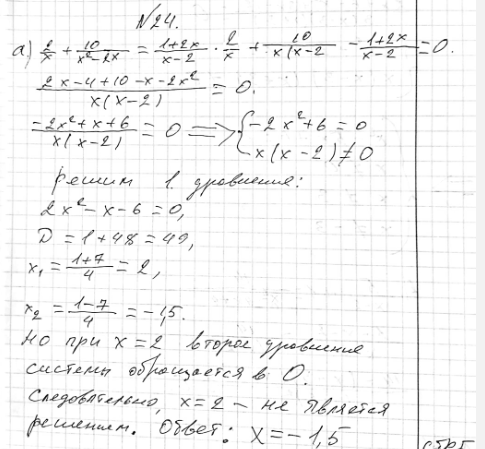 №24.
а) 2/x + 10/(x²-2x) = (1+2x)/(x-2) · 2/x + 10/(x(x-2) - (1+2x)/(x-2) = 0.
(2x-4+10-x-2x²)/(x(x-2)) = 0.
(-2x²+x+6)/(x(x-2)) = 0 => { -2x²+6 = 0
x(x-2) ≠ 0
решим 1. уравнение:
2x²-x-6=0,
D=1+48=49,
x₁ = (1+7)/4 = 2,
x₂ = (1-7)/4 = -1,5.
Но при x=2 второе уравнение
системы обращается в 0.
Следовательно, x=2 – не является
решением. Ответ: x=-1,5
стр.